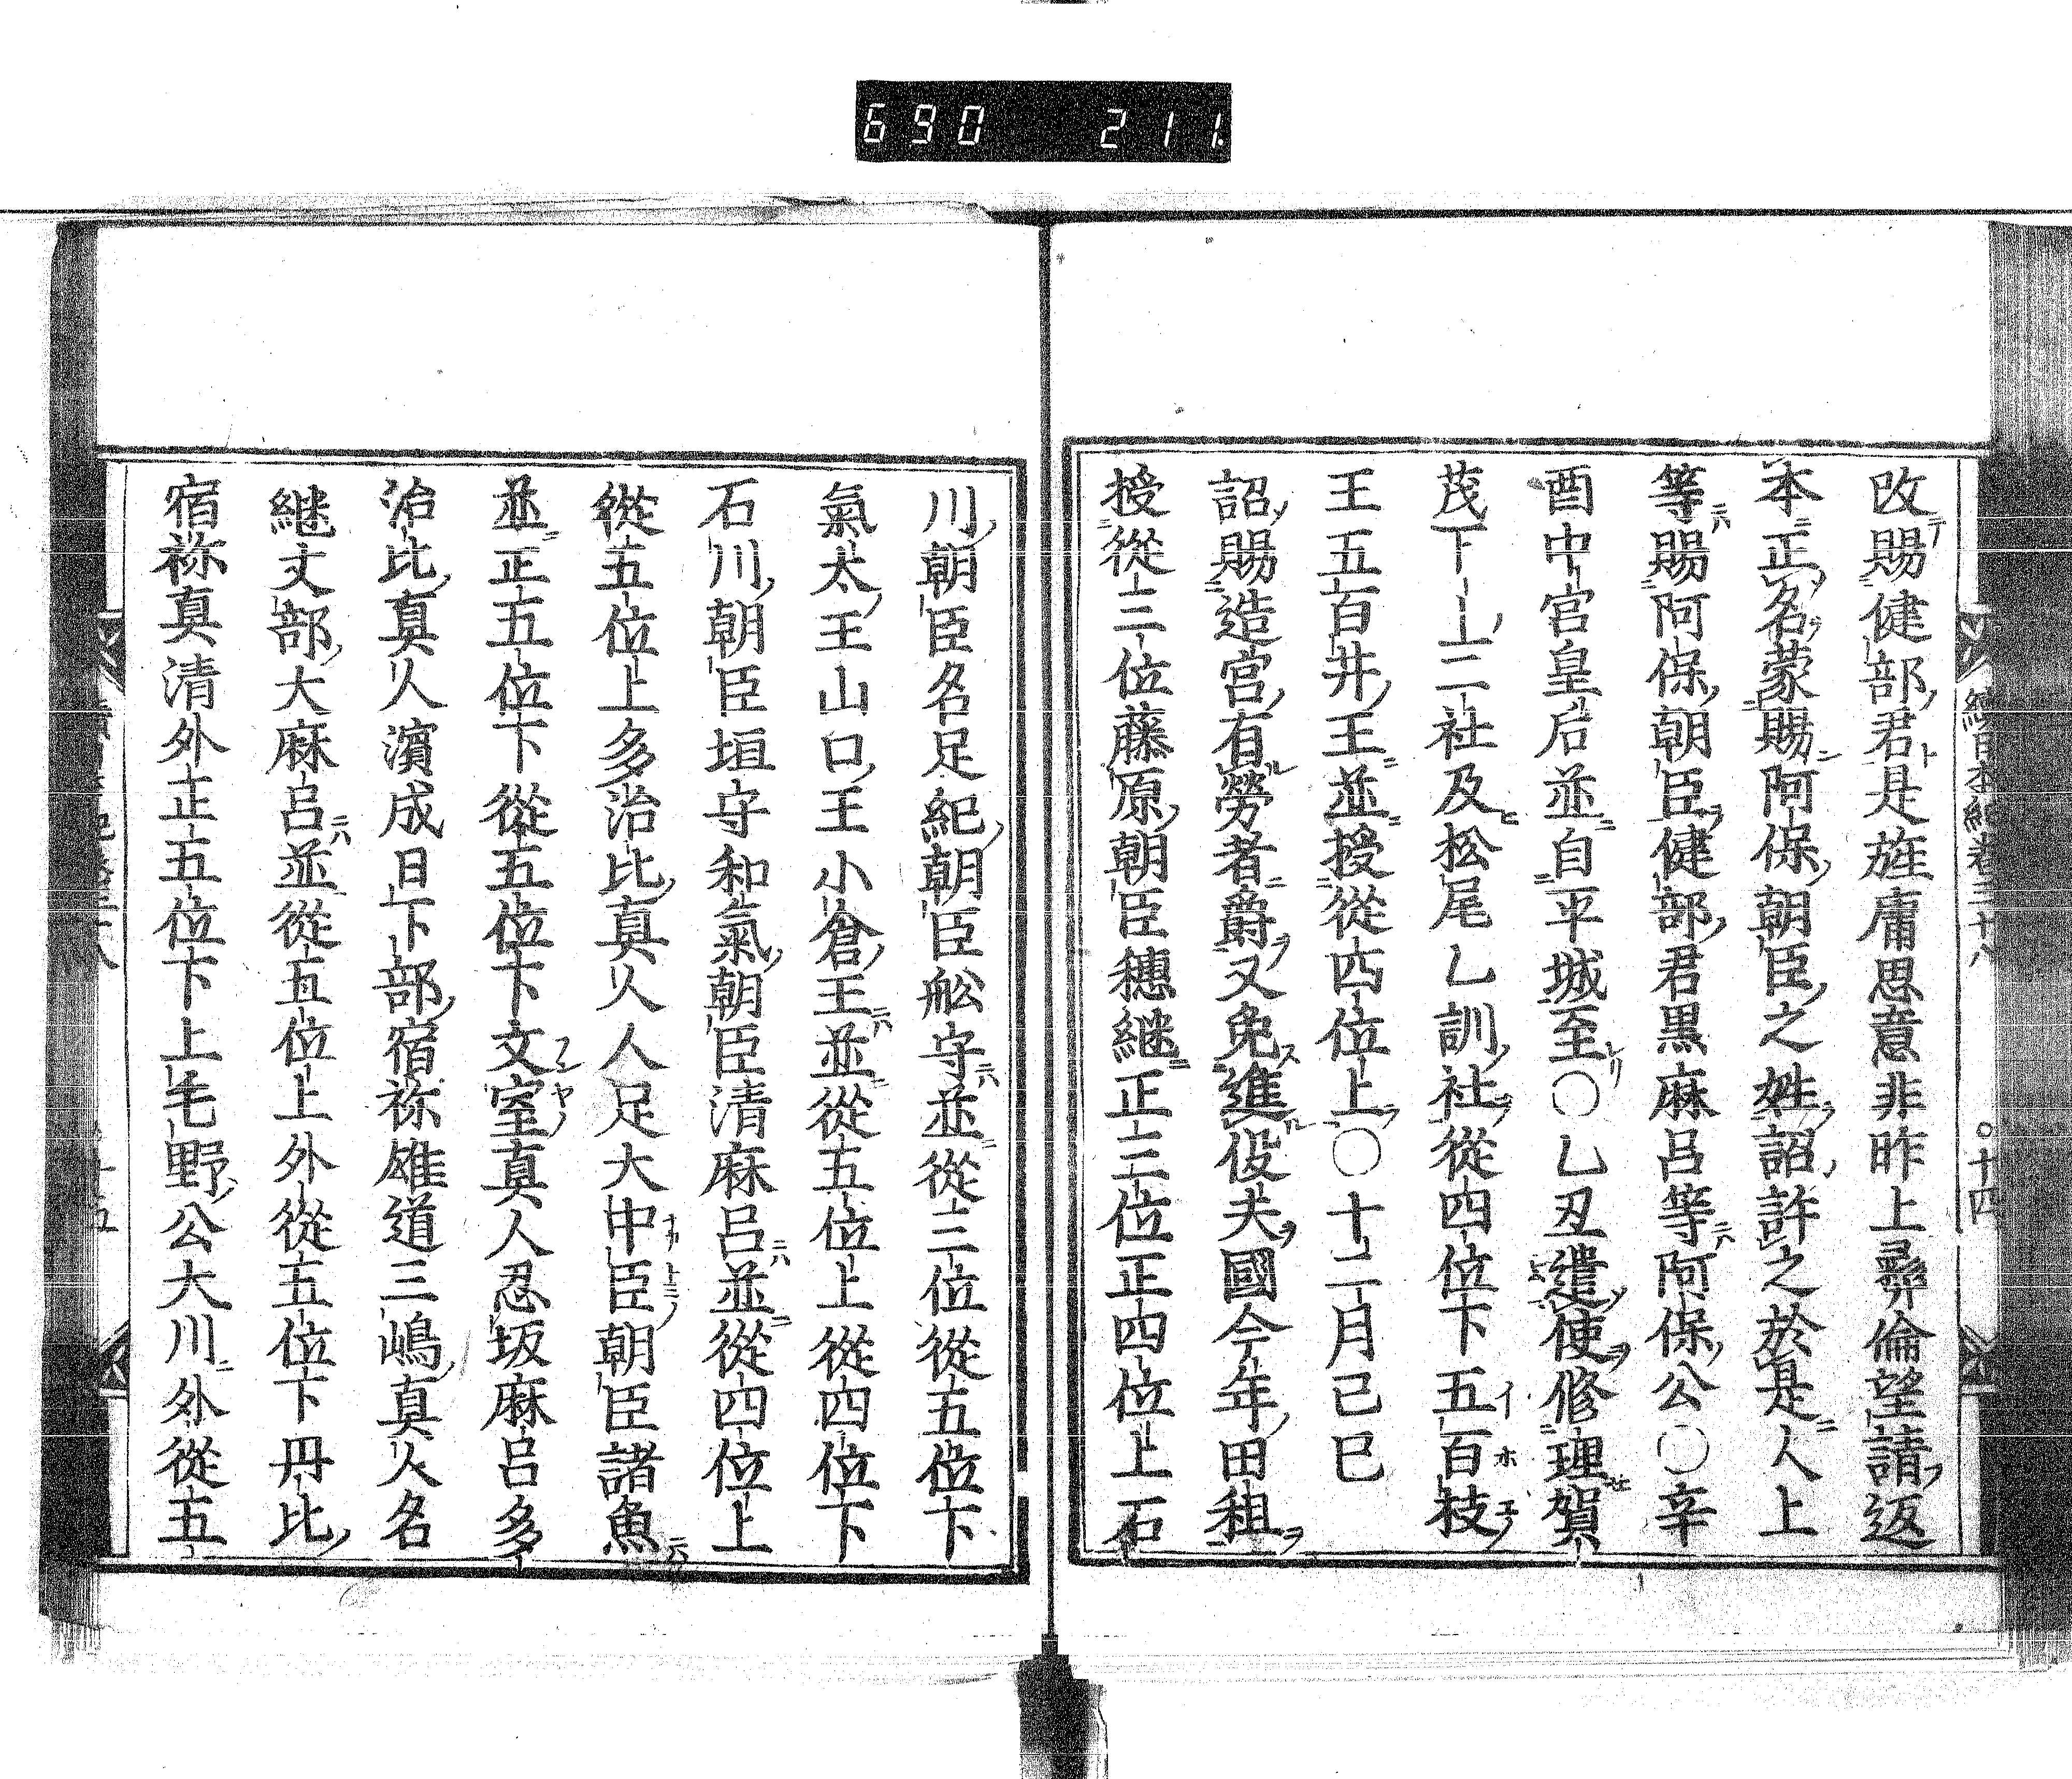 690 211
續日本紀卷三十八 ○十四
改賜健部君是旌庸思意非昨上彞倫望請返
本正名蒙賜阿保朝臣之姓詔許之於是人上
等賜阿保朝臣健部君黒麻呂等阿保公○辛
酉中宮皇后並自平城至○乙丑遣使修理賀
茂下上二社及松尾乙訓社從四位下五百枝
王五百井王並授從四位上○十二月己巳
詔賜造宮有勞者爵又免進役夫國今年田租
授從三位藤原朝臣穗継正三位正四位上石
川朝臣名足紀朝臣舩守並從三位從五位下
氣太王山口王小倉王並從五位上從四位下
石川朝臣垣守和氣朝臣清麻呂並從四位上
從五位上多治比真人人足大中臣朝臣諸魚
並正五位下從五位下文室真人忍坂麻呂多
治比真人濵成日下部宿祢雄道三嶋真人名
継丈部大麻呂並從五位上外從五位下丹比
宿祢真清外正五位下上毛野公大川外從五